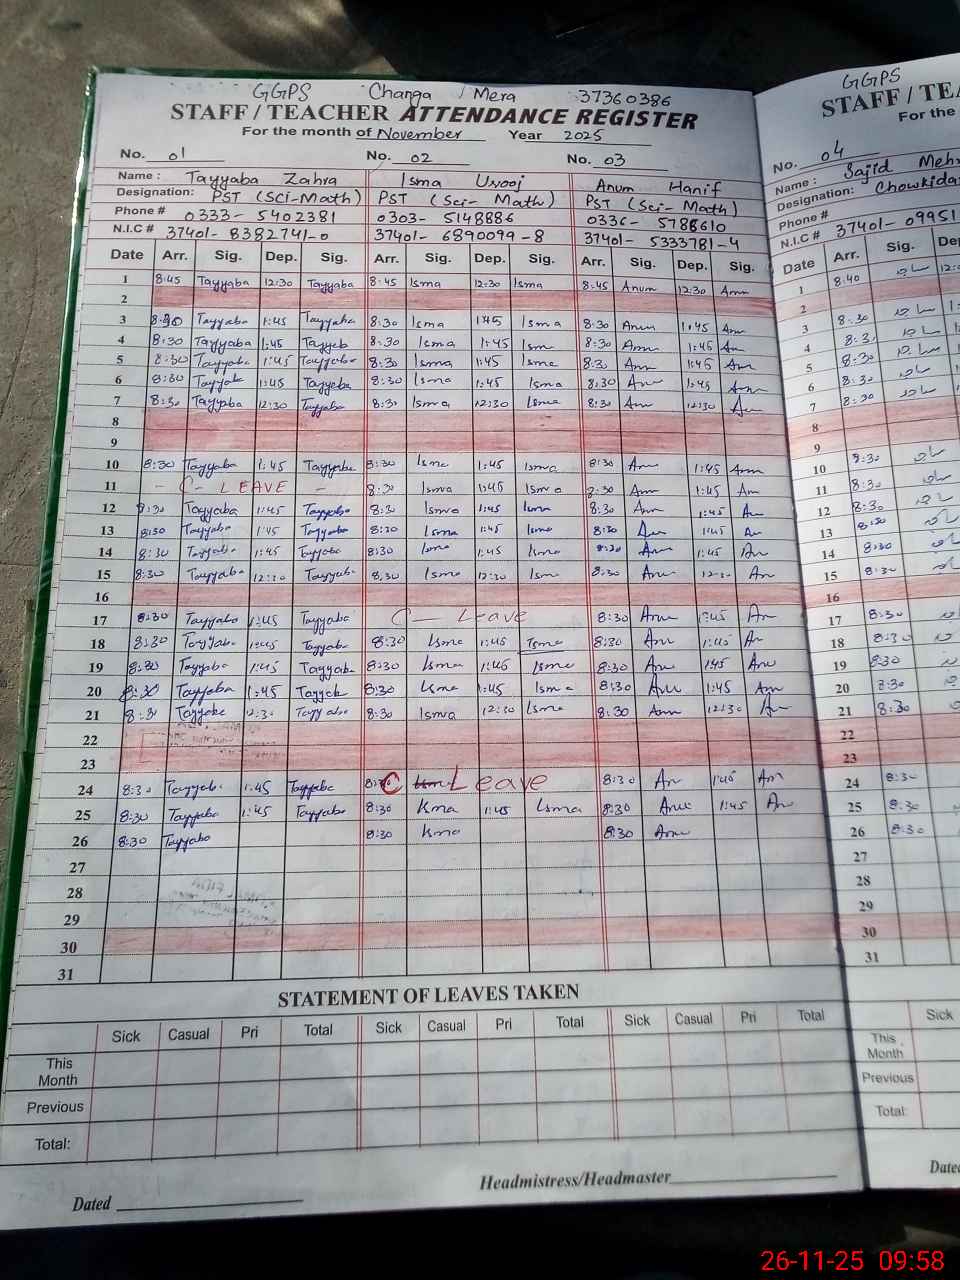 GGPS Changa Mera 37360386
STAFF / TEACHER ATTENDANCE REGISTER
For the month of November Year 2025
No. 01 No. 02 No. 03
Name : Tayyaba Zahra Isma Urooj Anum Hanif
Designation: PST (Sci-Math) PST (Sci-Math) PST (Sci-Math)
Phone # 0333-5402381 0303-5148886 0336-5788610
N.I.C # 37401-8382741-0 37401-6890099-8 37401-5333781-4
Date Arr. Sig. Dep. Sig. Arr. Sig. Dep. Sig. Arr. Sig. Dep. Sig.
1 8:45 Tayyaba 12:30 Tayyaba 8:45 Isma 12:30 Isma 8:45 Anum 12:30 Anu
2
3 8:30 Tayyaba 1:45 Tayyaba 8:30 Isma 1:45 Isma 8:30 Anum 1:45 Anu
4 8:30 Tayyaba 1:45 Tayyab 8:30 Isma 1:45 Ism 8:30 Anu 1:45 An
5 8:30 Tayyaba 1:45 Tayyaba 8:30 Isma 1:45 Isma 8:30 An 1:45 An
6 8:30 Tayyab 1:45 Tayyaba 8:30 Isma 1:45 Isma 8:30 Anu 1:45 An
7 8:30 Tayyaba 12:30 Tayyaba 8:30 Isma 12:30 Isma 8:30 Anu 12:30 An
8
9
10 8:30 Tayyaba 1:45 Tayyaba 8:30 Isma 1:45 Isma 8:30 Anu 1:45 Anu
11 - C- LEAVE - 8:30 Isma 1:45 Isma 8:30 Anu 1:45 An
12 8:30 Tayyaba 1:45 Tayyaba 8:30 Isma 1:45 Isma 8:30 Anu 1:45 An
13 8:30 Tayyaba 1:45 Tayyaba 8:30 Isma 1:45 Isma 8:30 An 1:45 An
14 8:30 Tayyaba 1:45 Tayyaba 8:30 Isma 1:45 Isma 8:30 Anu 1:45 An
15 8:30 Tayyaba 12:30 Tayyaba 8:30 Isma 12:30 Ism 8:30 Anu 12:30 An
16
17 8:30 Tayyaba 1:45 Tayyaba C - Leave 8:30 Anu 1:45 An
18 8:30 Tayyaba 1:45 Tayyaba 8:30 Isma 1:45 Isma 8:30 Anu 1:45 An
19 8:30 Tayyaba 1:45 Tayyaba 8:30 Isma 1:45 Isma 8:30 Anu 1:45 Anu
20 8:30 Tayyaba 1:45 Tayyab 8:30 Isma 1:45 Isma 8:30 Anu 1:45 An
21 8:30 Tayyaba 12:30 Tayyaba 8:30 Isma 12:30 Isma 8:30 Anu 12:30 An
22
23
24 8:30 Tayyaba 1:45 Tayyaba 8:30 C Leave 8:30 An 1:45 An
25 8:30 Tayyaba 1:45 Tayyaba 8:30 Isma 1:45 Isma 8:30 Anu 1:45 An
26 8:30 Tayyaba 8:30 Isma 8:30 Anu
27
28
29
30
31
STATEMENT OF LEAVES TAKEN
Sick Casual Pri Total Sick Casual Pri Total Sick Casual Pri Total
This Month
Previous
Total:
Dated Headmistress/Headmaster
GGPS
STAFF / TEA
For the
No. 04
Name : Sajid Meh
Designation: Chowkida
Phone #
N.I.C # 37401-09951
Date Arr. Sig. Dep
1 8:40 ساجد
2
3 8:30 ساجد
4 8:30 ساجد
5 8:30 ساجد
6 8:30 ساجد
7 8:30 ساجد
8
9
10 8:30
11 8:30
12 8:30
13 8:30
14 8:30
15 8:30
16
17 8:30
18 8:30
19 8:30
20 8:30
21 8:30
22
23
24 8:30
25 8:30
26 8:30
27
28
29
30
31
Sick
This Month
Previous
Total:
Dated
26-11-25 09:58